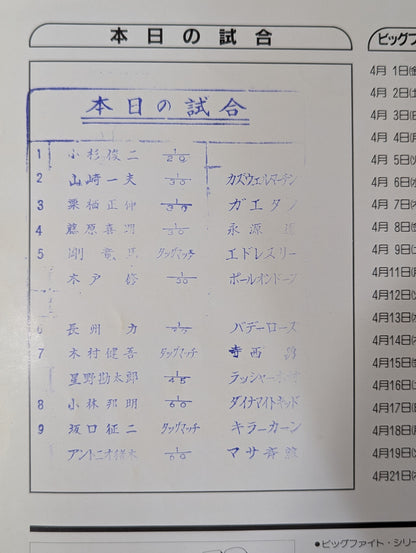 本日の試合
ビッグフ
本日の試合
1 小杉俊二 1/20
2 山崎一夫 1/30 カズウェルマーチン
3 栗栖正伸 1/30 ガエタノ
4 藤原喜明 1/30 永源遥
5 剛竜馬 タッグマッチ エドレスリー
木戸修 1/30 ポールオンドーフ
6 長州力 バデーローズ
7 木村健吾 タッグマッチ 寺西勇
星野勘太郎 1/45 ラッシャー木村
8 小林邦明 1/60 ダイナマイトキッド
9 坂口征二 タッグマッチ キラーカーン
アントニオ猪木 1/60 マサ斉藤
4月 1日
4月 2日
4月 3日
4月 4日
4月 5日
4月 6日
4月 7日
4月 8日
4月 9日
4月11日
4月12日
4月13日
4月14日
4月15日
4月16日
4月17日
4月18日
4月19日
4月21日
●ビッグファイト・シリー